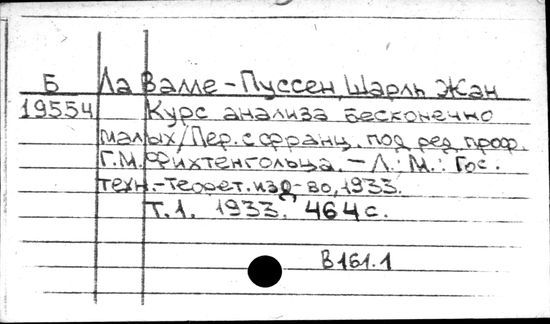 Б Ла Валле-Пуссен, Шарль Жан
19554 Курс анализа бесконечно
малых/Пер. с франц. под ред. проф.
Г.М. Фихтенгольца. – Л.; М.: Гос.
техн.-теорет. изд-во, 1933.
Т.1. 1933. 464 с.
В161.1